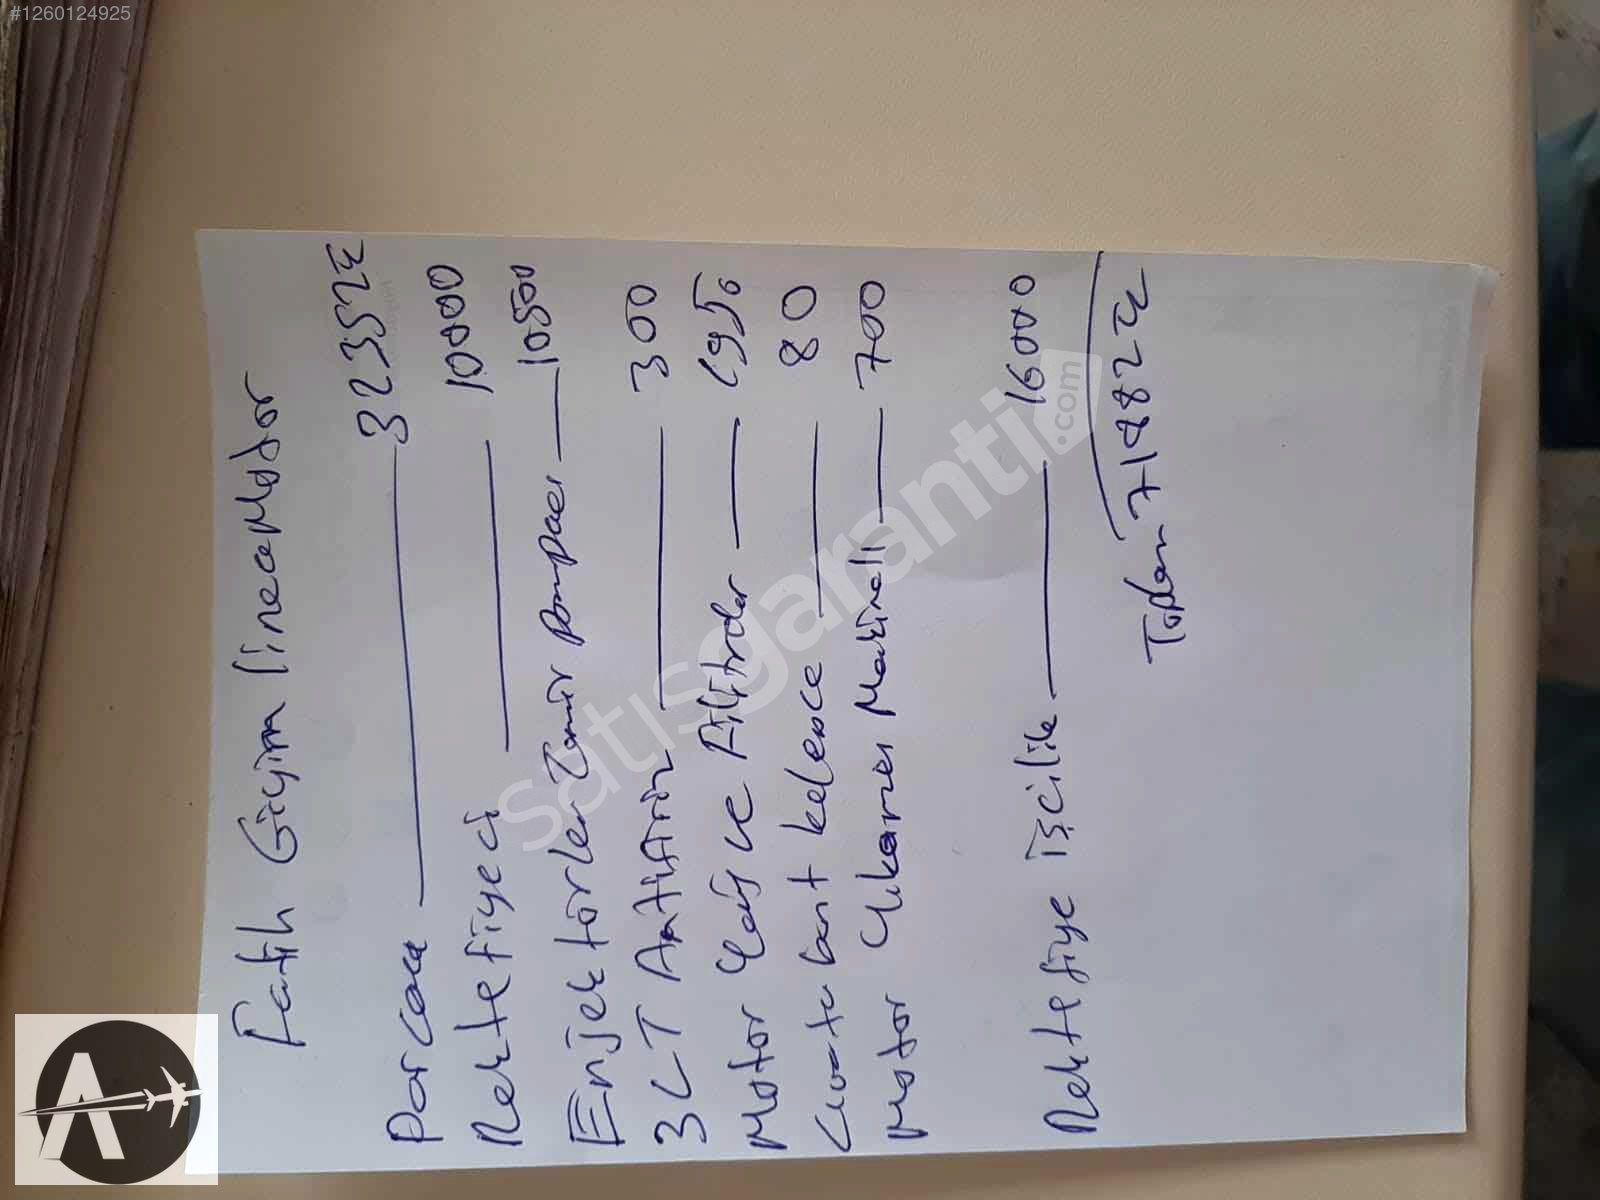 #1260124925
Fatih Giyim linea Motor
Parcacı 32352 TL
Rektefiyeci 10000
Enjektörler Tamir pompacı 10500
3 LT Antifiriz 300
Motor Yağı ve Filitreler 1950
Civata bant kelepçe 80
Motor Çıkarma Makinalı 700
Rektefiye işcilik 16000
Toplam 71882 TL
satisgaranti.com
A